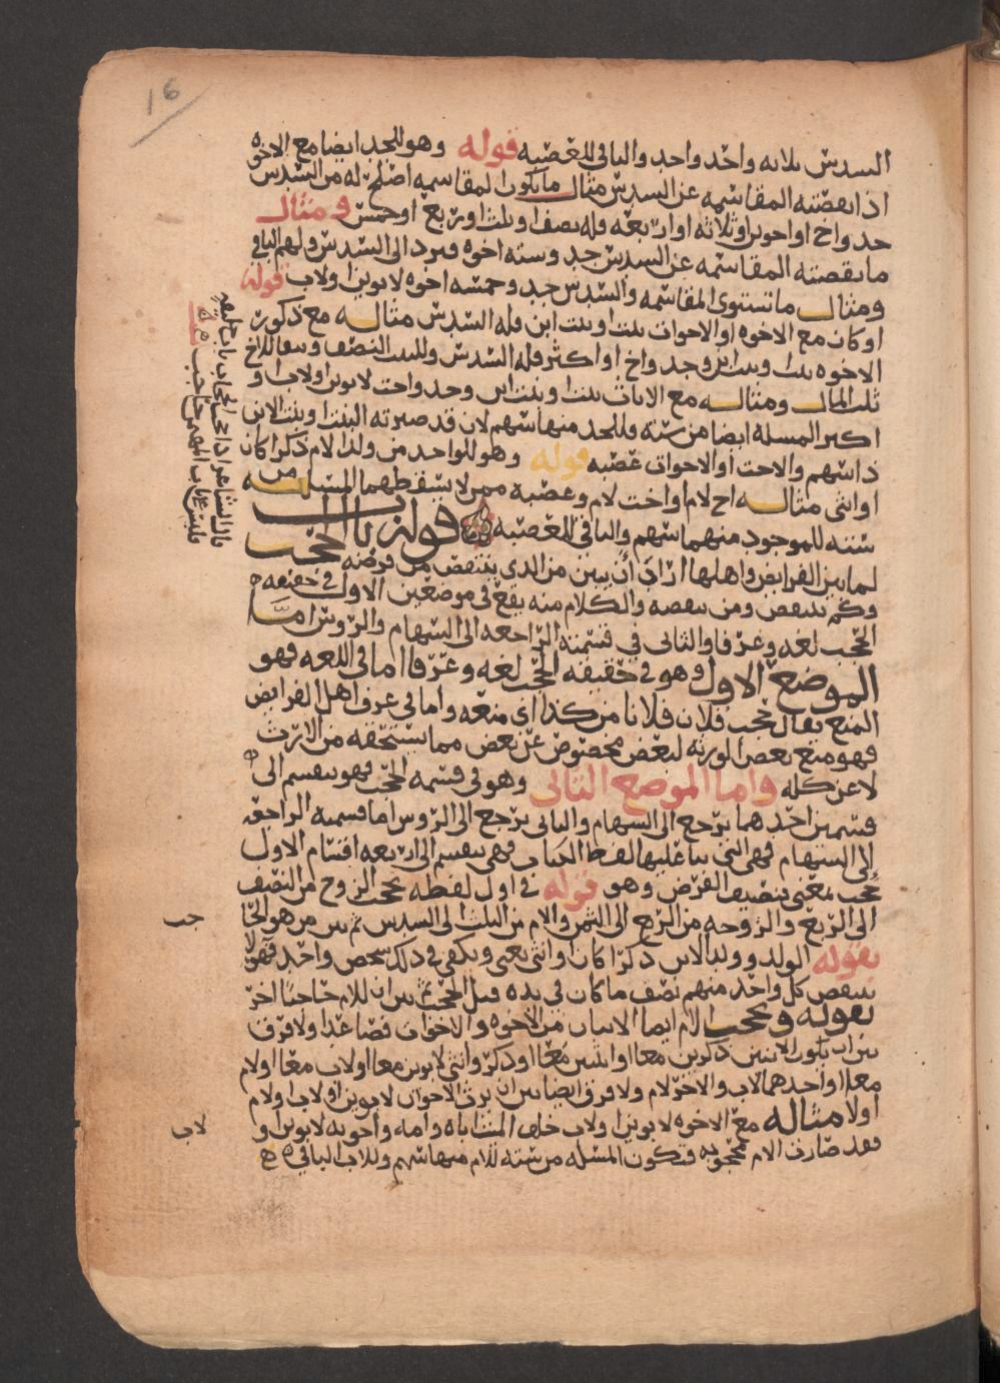 16
السدس ثلاثه واخد واحد والباقي للعصبه قوله وهو للجد ايضا مع الاخوه
اذا نقصته المقاسمه عن السدس مثال ما يكون المقاسمه اصلح له من السدس
جد واخ او اخوين او ثلاثه او اربعه فله نصف او ثلث او ربع او خمس ومثال
ما نقصته المقاسمه عن السدس جد وسته اخوه فيرد الى السدس ولهم الباقي
ومثال ما تستوي المقاسمه والسدس جد وخمسه اخوه لابوين او لاب قوله
او كان مع الاخوه او الاخوات بنت او بنت ابن فله السدس مثاله مع ذكور
الاخوه بنت وبنت ابن وجد واخ او اكثر فله السدس وللبنت النصف وبنتا للاخ
ثلث المال ومثاله مع الاناث بنت وبنت ابن وجد واخت لابوين او لاب او
اكثر المسله ايضا من سته وللجد منها سهم لان قد صيرته البنت وبنت الابن
ذا سهم والاخت او الاخوات عصبه قوله وهو للواحد من ولد الام ذكرا كان
او انثى مثاله اخ لام او اخت لام وعصبه ممن لا يسقطهما المسله من
سته للموجود منهما سهم والباقي للعصبه قوله باب الحجب
لما بين الفرايض واهلها اراد ان يبين من الذي ينتقص من فرضه
وكم ينتقص ومن ينقصه والكلام منه يقع في موضعين الاول في حقيقه
الحجب لغه وعرفا والثاني في قسمته الراجعه الى السهام والروس اما
الموضع الاول وهو في حقيقه الحجب لغه وعرفا اما في اللغه فهو
المنع يقال حجب فلان فلانا من كذا اي منعه واما في عرف اهل الفرايض
فهو منع بعض الورثه لبعض مخصوص عن بعض مما يستحقه من الارث
لا عن كله واما الموضع الثاني وهو في قسمه الحجب فهو ينقسم الى
قسمين احدهما يرجع الى السهام والثاني يرجع الى الروس اما قسمته الراجعه
الى السهام فهي التي بنا عليها لفظ الكتاب فهي تنقسم الى اربعه اقسام الاول
حجب بمعنى تنصيف الفرض وهو قوله في اول لفظه يحجب الزوج من النصف
الى الربع والزوجه من الربع الى الثمن والام من الثلث الى السدس ثم بين من هو الحا
جب
بقوله الولد وولد الابن ذكرا كان او انثى يعني ويكفي في ذلك شخص واحد فهو
ينقص كل واحد منهم نصف ما كان في يده قبل الحجب ثم بين ان للام حاجبا اخر
بقوله ويحجب الام ايضا الاثنان من الاخوه والاخوات فصاعدا ولا فرق
بين ان يكون الاثنين ذكرين معا او انثيين معا او ذكر وانثى لابوين معا او لاب معا او لام
معا او احدهما لاب والاخر لام ولا فرق ايضا بين ان يرث الاخوان لابوين او لاب او لام
او لا مثاله مع الاخوه لابوين او لاب خلف الميت اباه وامه واخويه لابوين او
لاب
فقد صارت الام محجوبه فتكون المسله من سته للام منها سهم وللاب الباقي